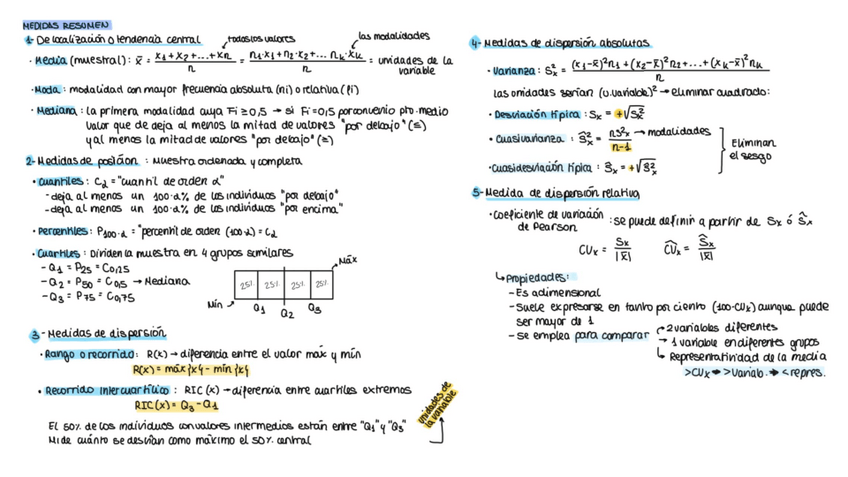 MEDIDAS RESUMEN
1- De localización o tendencia central
todos los valores
las modalidades
· Media (muestral): x̄ = (x1 + x2 + ... + xn) / n = (n1·x1 + n2·x2 + ... nk·xk) / n = unidades de la variable
· Moda: modalidad con mayor frecuencia absoluta (ni) o relativa (fi)
· Mediana: la primera modalidad cuya Fi ≥ 0,5 → si Fi = 0,5 por convenio pto. medio
valor que de deja al menos la mitad de valores "por debajo" (≤)
y al menos la mitad de valores "por debajo" (≥)
2- Medidas de posición: Muestra ordenada y completa
· Cuantiles: Cα = "cuantil de orden α"
- deja al menos un 100·α% de los individuos "por debajo"
- deja al menos un 100·α% de los individuos "por encima"
· Percentiles: P100·α = "percentil de orden (100·α) = Cα
· Cuartiles: Dividen la muestra en 4 grupos similares
- Q1 = P25 = C0,25
- Q2 = P50 = C0,5 → Mediana
- Q3 = P75 = C0,75
Máx
25% 25% 25% 25%
Mín Q1 Q2 Q3
3- Medidas de dispersión
· Rango o recorrido: R(x) → diferencia entre el valor máx y mín
R(x) = máx{x} - mín{x}
· Recorrido intercuartílico: RIC(x) → diferencia entre cuartiles extremos
RIC(x) = Q3 - Q1
unidades de la variable
El 50% de los individuos con valores intermedios están entre "Q1" y "Q3"
Mide cuánto se desvían como máximo el 50% central
4- Medidas de dispersión absolutas
· Varianza: S²x = ((x1 - x̄)²n1 + (x2 - x̄)²n2 + ... + (xk - x̄)²nk) / n
las unidades serían (u.variable)² → eliminar cuadrado:
· Desviación típica: Sx = +√S²x
· Cuasivarianza: Ŝ²x = nS²x / n-1 → modalidades
Eliminan
el sesgo
· Cuasidesviación típica: Ŝx = +√Ŝ²x
5- Medida de dispersión relativa
· Coeficiente de variación
de Pearson : se puede definir a partir de Sx ó Ŝx
CVx = Sx / |x̄| ĈVx = Ŝx / |x̄|
↳ Propiedades:
- Es adimensional
- Suele expresarse en tanto por ciento (100·CVx) aunque puede
ser mayor de 1
- Se emplea para comparar → 2 variables diferentes
→ 1 variable en diferentes grupos
↳ Representatividad de la media
>CVx → >Variab. → <repres.